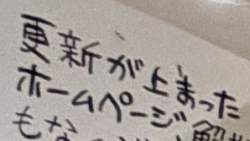 更新が止まった
ホームページ
もな